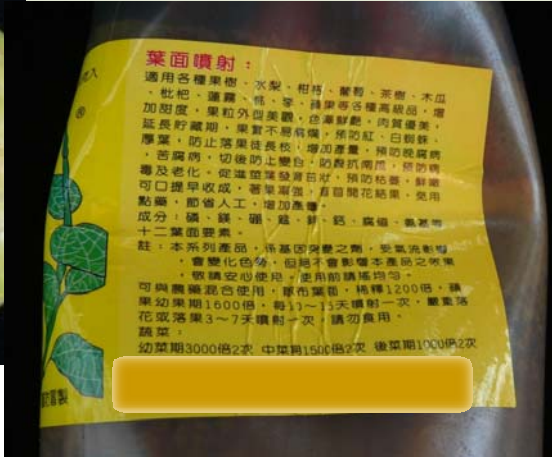 葉面噴射：
適用各種果樹、水梨、柑桔、葡萄、茶樹、木瓜
、枇杷、蓮霧、桃、李、蘋果等各種高級品，增
加甜度，果粒外型美觀，色澤鮮艷，肉質優美，
延長貯藏期，果實不易腐爛，預防紅、白蜘蛛、
厚葉，防止落果徒長枝，增加產量，預防晚腐病
，苦腐病，切後防止變合，防裂抗南瓜，預防病
毒及老化。促進莖葉發育茁壯，預防枯萎，鮮嫩
可口提早收成，著果率強，直首開花結果，免用
點藥，節省人工，增加產量。
成分：磷、鎂、硼、錳、鋅、鈣、腐磷、氨基等
十二葉面要素。
註：本系列產品，係基因突變之劑，受氣流影響
，會變化色勢，但絕不會影響本產品之效果
，敬請安心使用，使用前請搖均勻。
可與農藥混合使用，噴布葉面，稀釋1200倍，蘋
果幼果期1600倍，每10～15天噴射一次，嚴重落
花或落果3～7天噴射一次，請勿食用。
蔬菜：
幼菜期3000倍2次 中菜期1500倍2次 後菜期1000倍2次
®